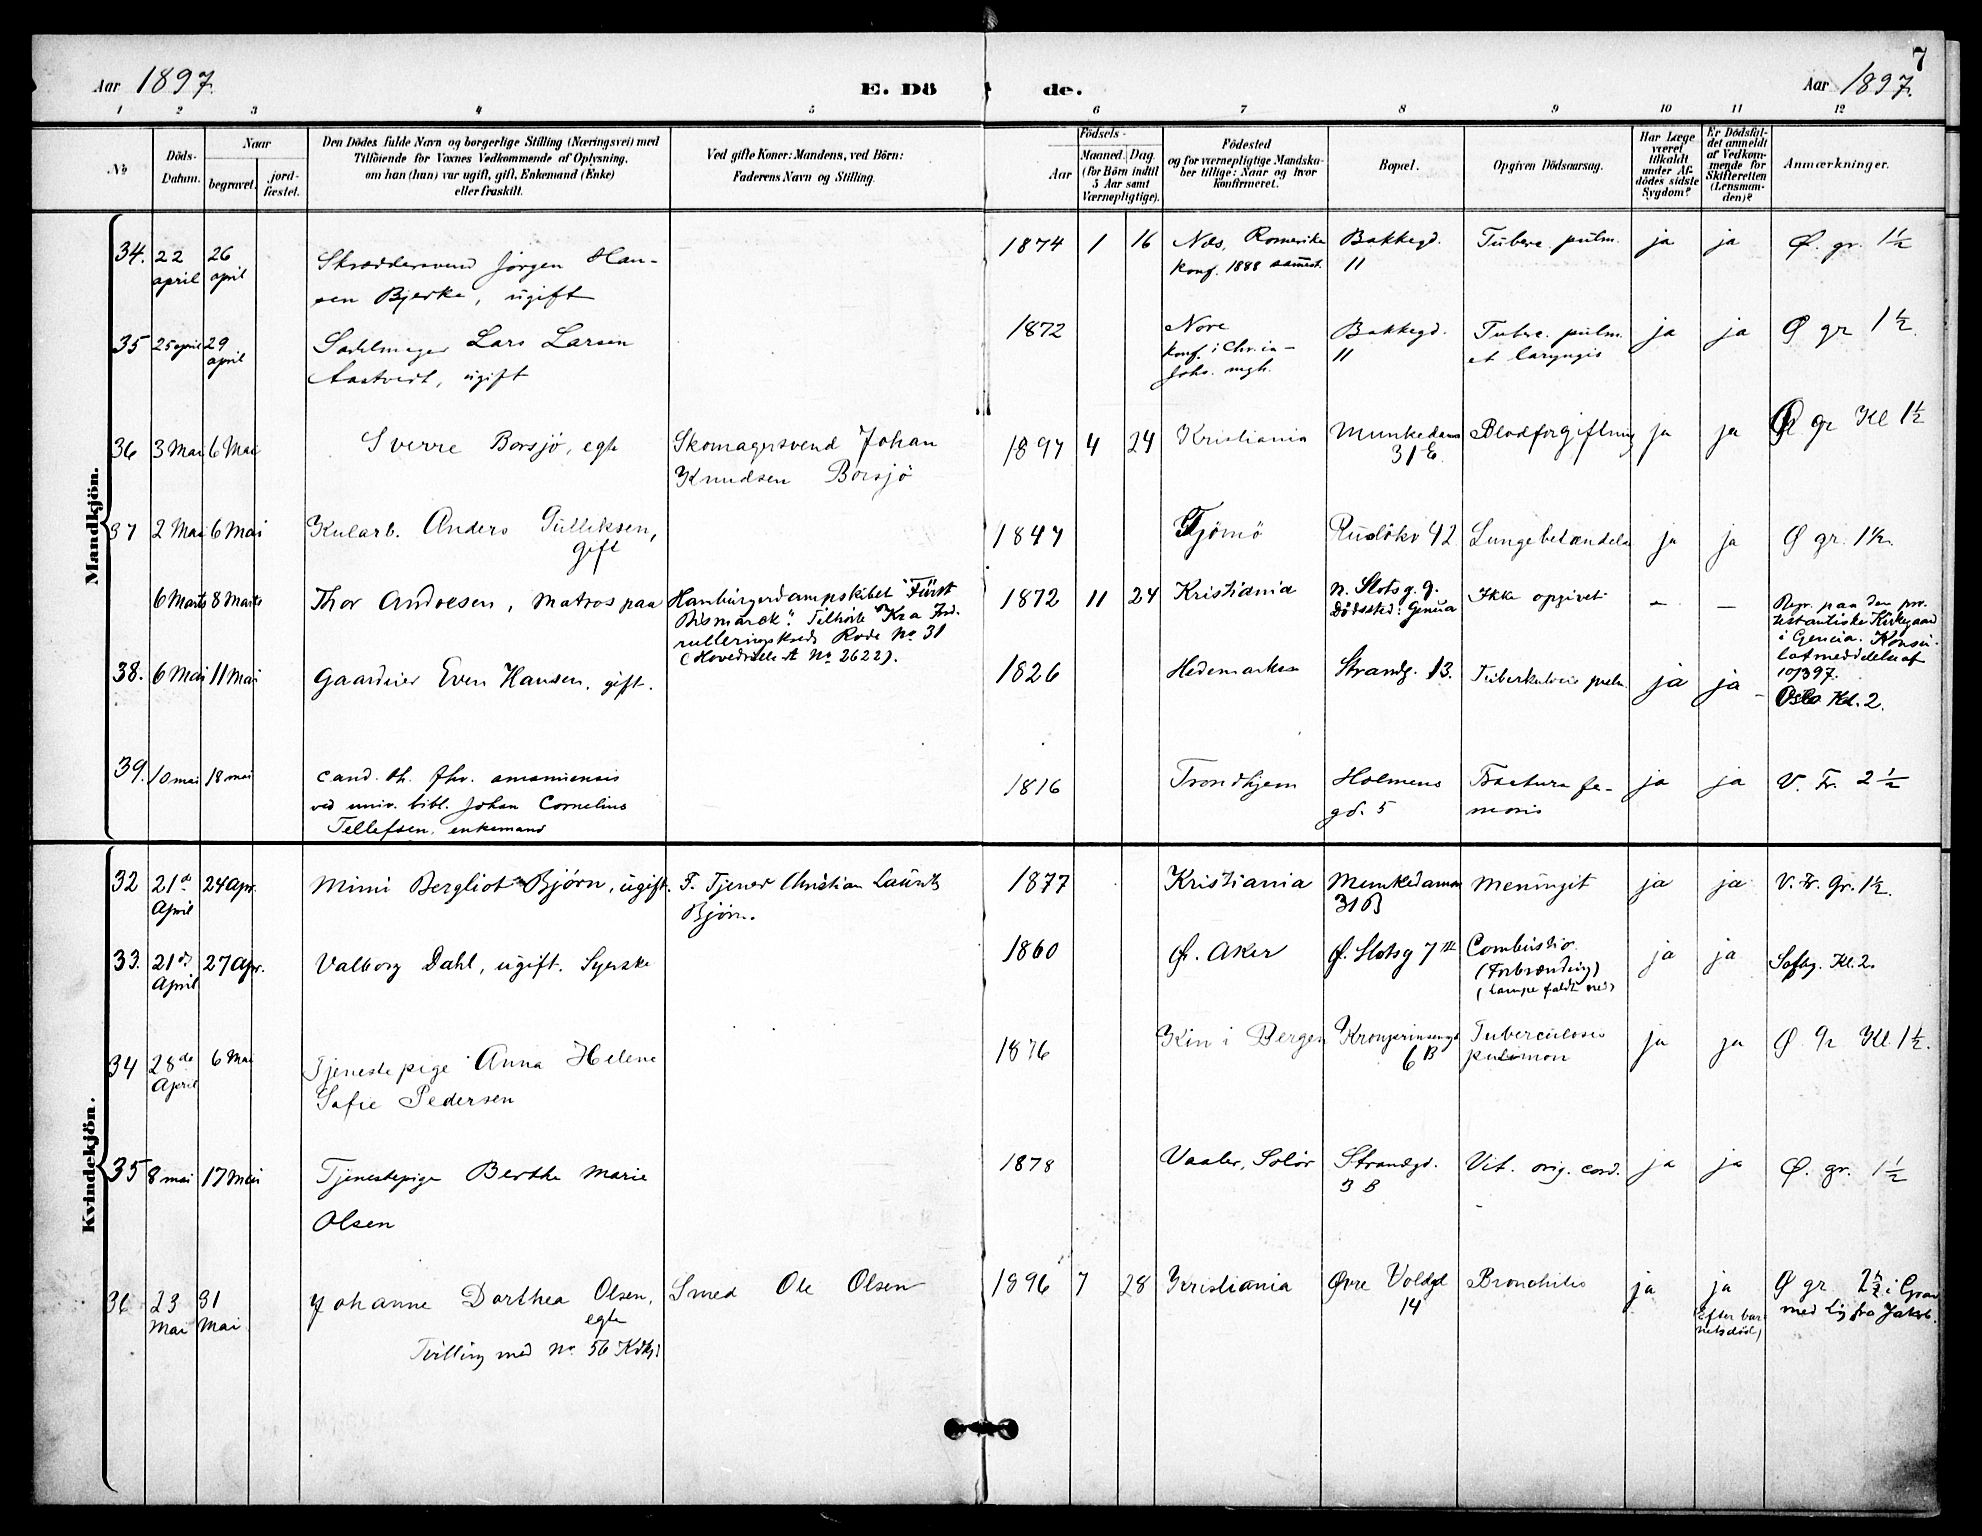 7
Aar 1897.
E. Dö de.
Aar 1897.
1 2 3 4 5 6 7 8 9 10 11 12
No
Döds-
Datum.
Naar
begravet.
jord-
fæstet.
Den Dödes fulde Navn og borgerlige Stilling (Næringsvei) med
Tilföiende for Voxnes Vedkommende af Oplysning,
om han (hun) var ugift, gift, Enkemand (Enke)
eller fraskilt.
Ved gifte Koner: Mandens, ved Börn:
Faderens Navn og Stilling.
Födsels-
Aar
Maaned. Dag
(for Börn indtil
5 Aar samt
Værnepligtige).
Födested
og for værnepligtige Mandska-
ber tillige: Naar og hvor
konfirmeret.
Bopæl.
Opgiven Dödsaarsag.
Har Læge
været
tilkaldt
under Af-
dödes sidste
Sygdom?
Er Dödsfal-
det anmeldt
af Vedkom-
mende for
Skifteretten
(Lensman-
den)?
Anmærkninger.
Mandkjön.
34. 22 26 Skræddersvend Jørgen Han- 1874 1 16 Næs, Romerike Bakkegd. Tuberc. pulm. ja ja Ø. gr. 1½
april april sen Bjerke, ugift konf. 1888 sammest. 11
35 25 april 29 Sadelmager Lars Larsen 1872 Nore Bakkegd. Tuberc. pulm. ja ja Ø gr 1½.
april Aastvedt, ugift konf. i Chr.ia - 11 et laryngis
Johs. mgh.
36 3 Mai 6 Mai Sverre Borsjö, egte Skomagersvend Johan 1897 4 24 Kristiania Munkedams Blodforgiftning ja ja Ø gr Kl 1½
Knudsen Borsjö 31 E
37 2 Mai 6 Mai Kularb. Anders Gulliksen, 1847 Tjømø Rusløkv 42 Lungebetændelse ja ja Ø gr. 1½.
gift
6 Marts 8 Marts Thor Andresen, Matros paa Hamburgerdampskibet "Fürst 1872 11 24 Kristiania n. Slotsg. 9. Ikke opgivet - -
Bismarck". Tilhørte Kra Ind- Dödssted: Genua Begr. paa den pro-
rulleringskreds Rode No 31 testantiske Kirkegaard
(Hovedrulle A No 2622). i Genua. Konsu-
latmeddelelse af
10/3 97.
38. 6 Mai 11 Mai Gaardeier Even Hansen, gift. 1826 Hedemarken Strandg. 13. Tuberkulosis pulm. ja ja - Oslo Kl. 2.
39. 10 mai 18 mai cand. th. fhv. amanuensis 1816 Trondhjem Holmens Fractura fe- ja ja V. Fr. 2½
ved univ. bibl. Johan Cornelius gd. 5 moris
Tellefsen, enkemand
Kvindekjön.
32 21de 24 Apr. Mimi Bergliot Bjørn, ugift. F. Tjener Christian Lauritz 1877 Kristiania Munkedamsv Meningit ja ja V. Fr. Gr. 1½.
April Bjørn. 31 B
33. 21de 27 Apr. Valborg Dahl, ugift. Syerske 1860 Ø. Aker Ø. Slotsg 7 III Combustio ja ja Sofbg. Kl. 2.
April (Forbrænding)
(Lampe faldt ned)
34 28de 6 Mai Tjenestepige Anna Helene 1876 Kin i Bergen Kronprinsensgd Tuberculosis ja ja Ø gr Kl. 1½.
April Sofie Pedersen 6 B pulmon
35 8 mai 17 mai Tjenestepige Berthe Marie 1878 Vaaler, Solør Strandgd. Vit. orig. cord. ja ja Ø. gr. 1½
Olsen 3 B
36 23 31 Johanne Dorthea Olsen, Smed Ole Olsen 1896 7 28 Kristiania Øvre Voldgd Bronchitis ja ja Ø gr 2½ i Grav
Mai Mai egte 14 (Efter bar- med Lig fra Jakob.
netsdød)
Tvilling med No 56 Kdkj.